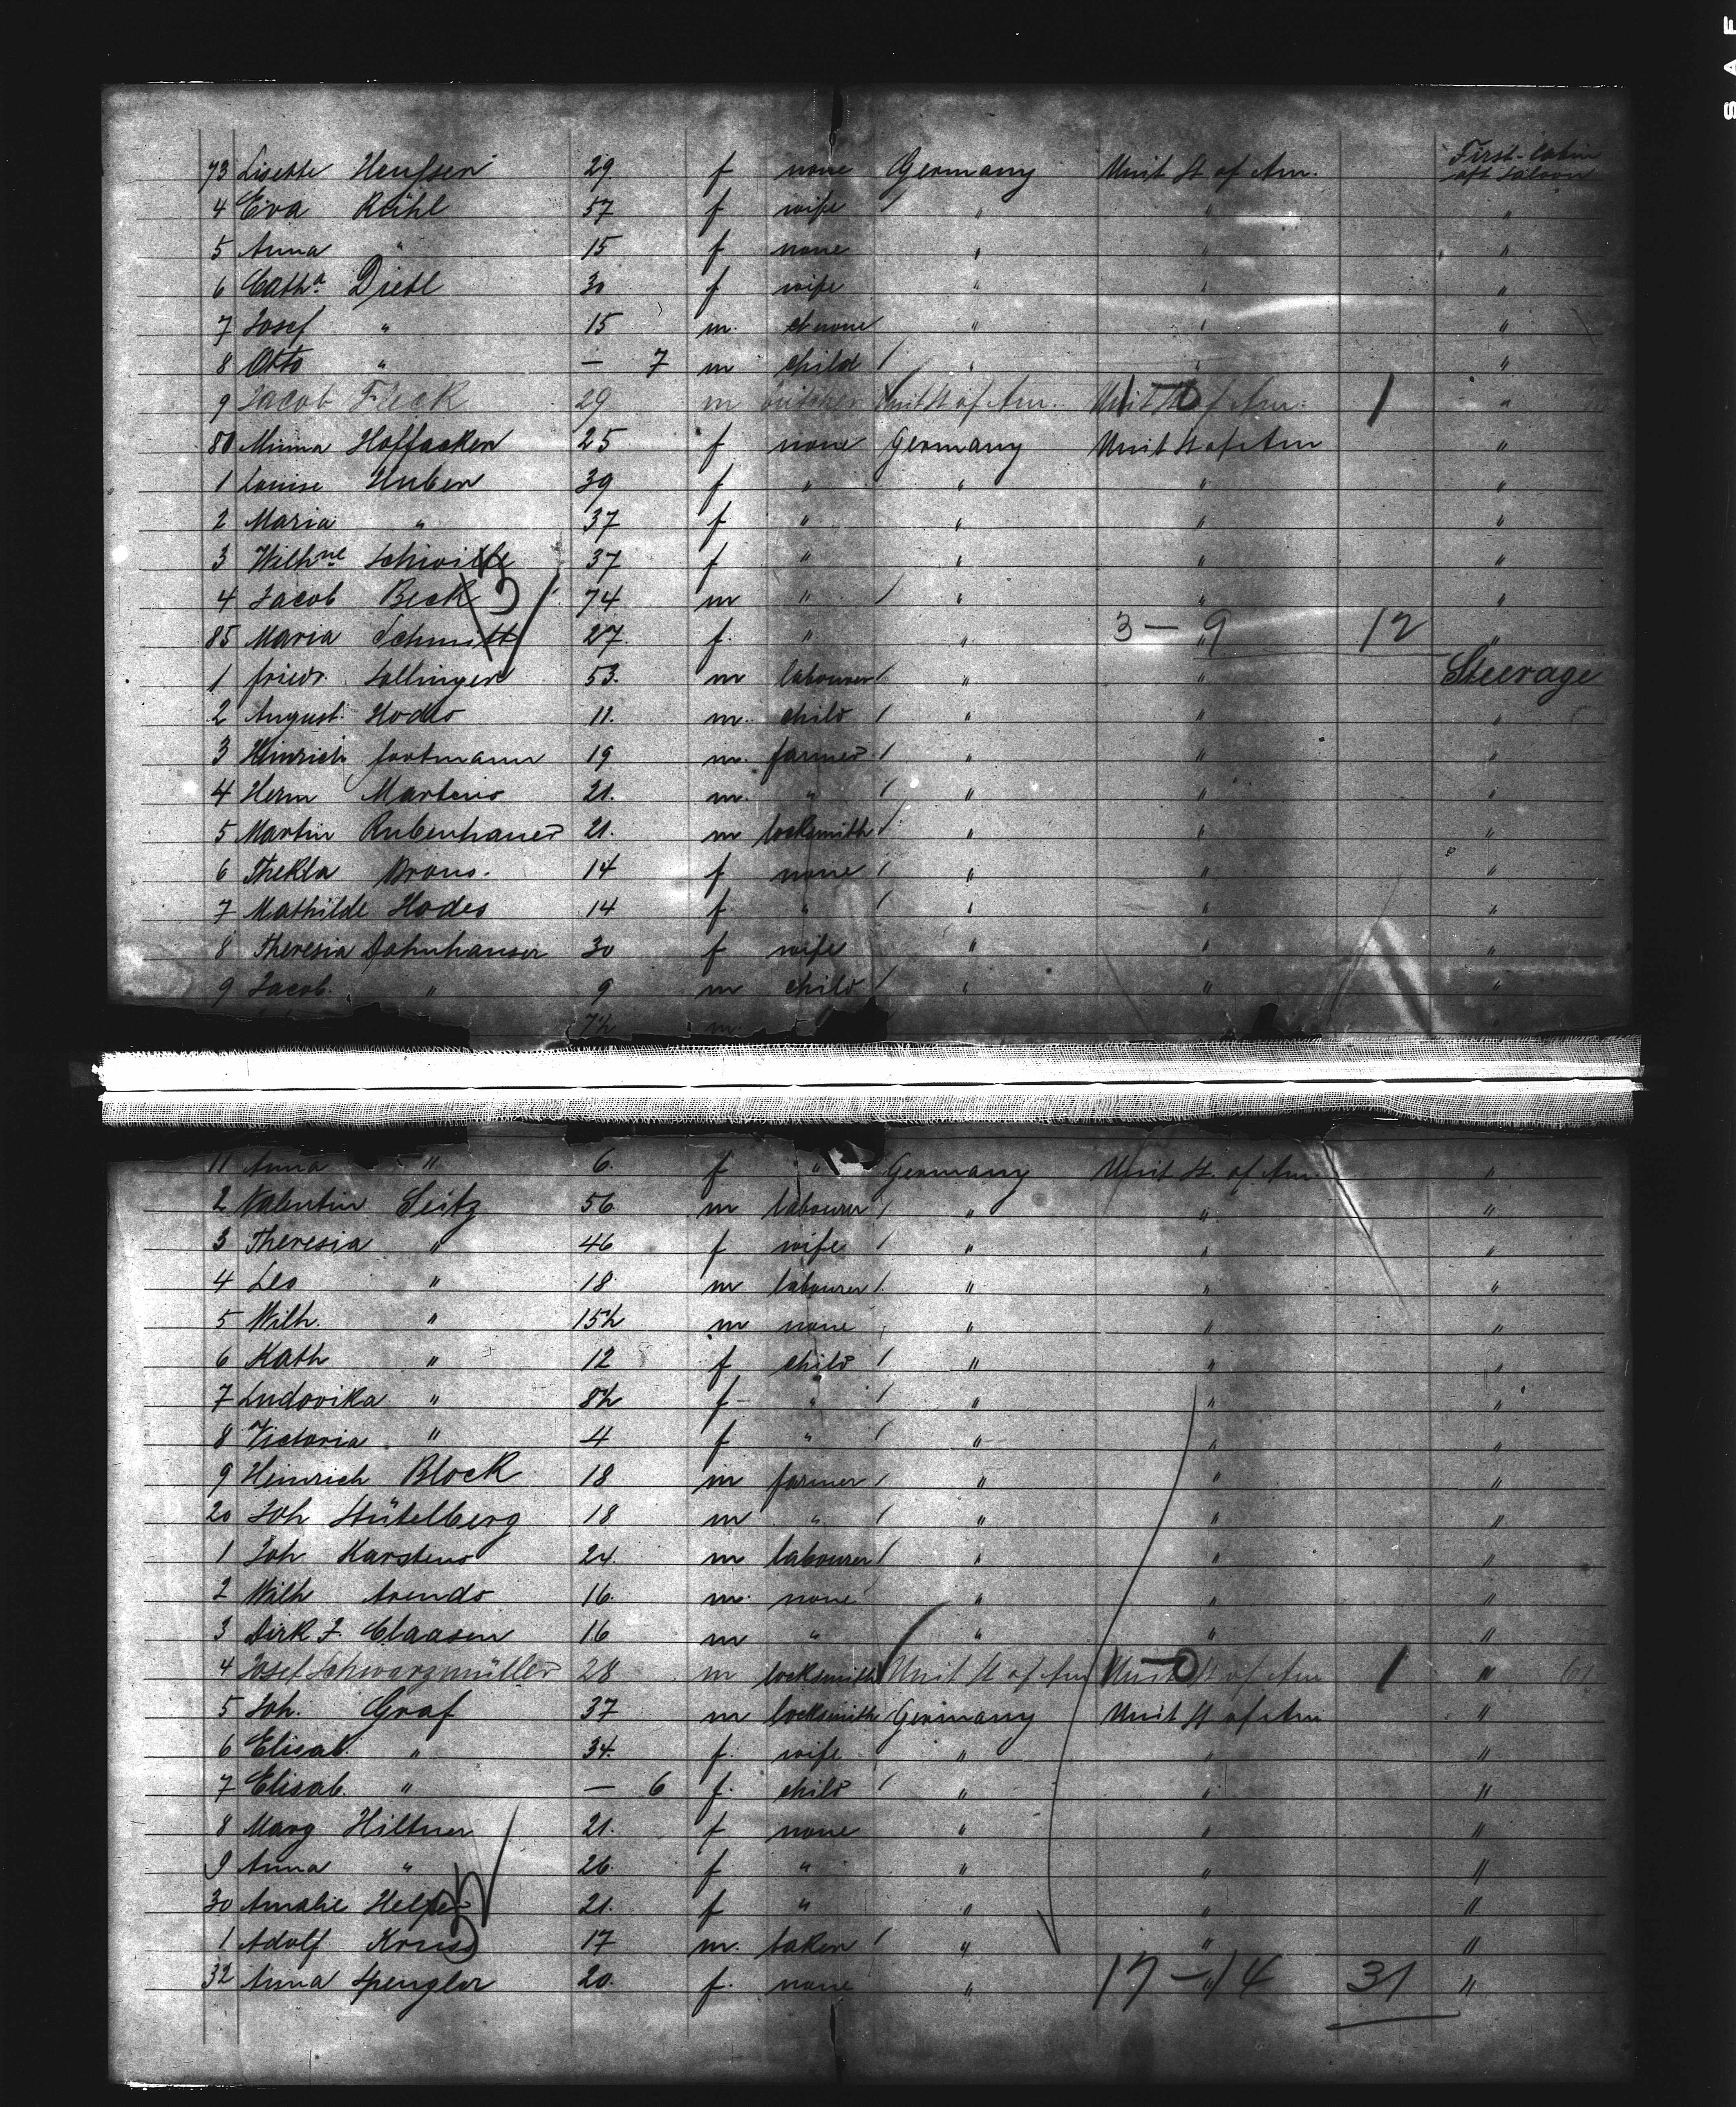 73 Lisette Heufsen 29 f none Germany Unit St. of Am. First-Cabin aft Saloon
4 Eva Rühl 57 f wife / " " "
5 Anna " 15 f none " " "
6 Cath.a Dietl 30 f wife " " "
7 Josef " 15 m. none " " "
8 Otto " — 7 m child / " " "
9 Jacob Fleck 29 m butcher Unit St of Am. Unit St of Am. 1-0 1 "
80 Minna Hoffacken 25 f none Germany Unit St of Am "
1 Louise Huber 39 f " " " "
2 Maria " 37 f " " " "
3 Wilh.ne 37 f " " " "
4 Jacob Beck 74 m " / " " "
85 Maria Schmitt 27. f. " " " 3 — 9 12 "
1 Friedr. Sollinger 53. m labourer / " " Steerage
2 August Hodes 11. m. child / " " "
3 Heinrich Fortmann 19 m. farmer / " " "
4 Herm Martens 21. m. " / " " "
5 Martin Rubenhauer 21. m locksmith / " " "
6 Thekla Brons. 14 f none / " " "
7 Mathilde Hodes 14 f " / " " "
8 Theresia Dahnhauser 30 f wife " " "
9 Jacob " 9 m child / " " "
7½ m. "
11 Anna " 6. f " Germany Unit St. of Am "
2 Valentin Seitz 56 m labourer / " " "
3 Theresia " 46 f wife / " " "
4 Leo " 18 m labourer / " " "
5 Wilh. " 15½ m none " " "
6 Kath " 12 f child / " " "
7 Ludovika " 8½ f " / " " "
8 Victoria " 4 f " / " " "
9 Heinrich Block 18 m farmer / " " "
20 Joh Stütelberg 18 m " / " " "
1 Joh Karstens 24. m labourer / " " "
2 Wilh Arends 16. m. none " " "
3 Dirk J. Claasen 16 m " " " "
4 Josef Schwarzmüller 28 m locksmith Unit St of Am Unit St of Am 1-0 1 "
5 Joh. Graf 37 m locksmith Germany Unit St of Am "
6 Elisab. " 34. f. wife " " "
7 Elisab. " — 6 f. child / " " "
8 Marg Hiltner 21. f none " " "
9 Anna " 26. f " " " "
30 Amalie Helfer 21. f " " " "
1 Adolf Kruss 17 m. baker / " " "
32 Anna Spengler 20. f. none " " 17 — 14 31 "